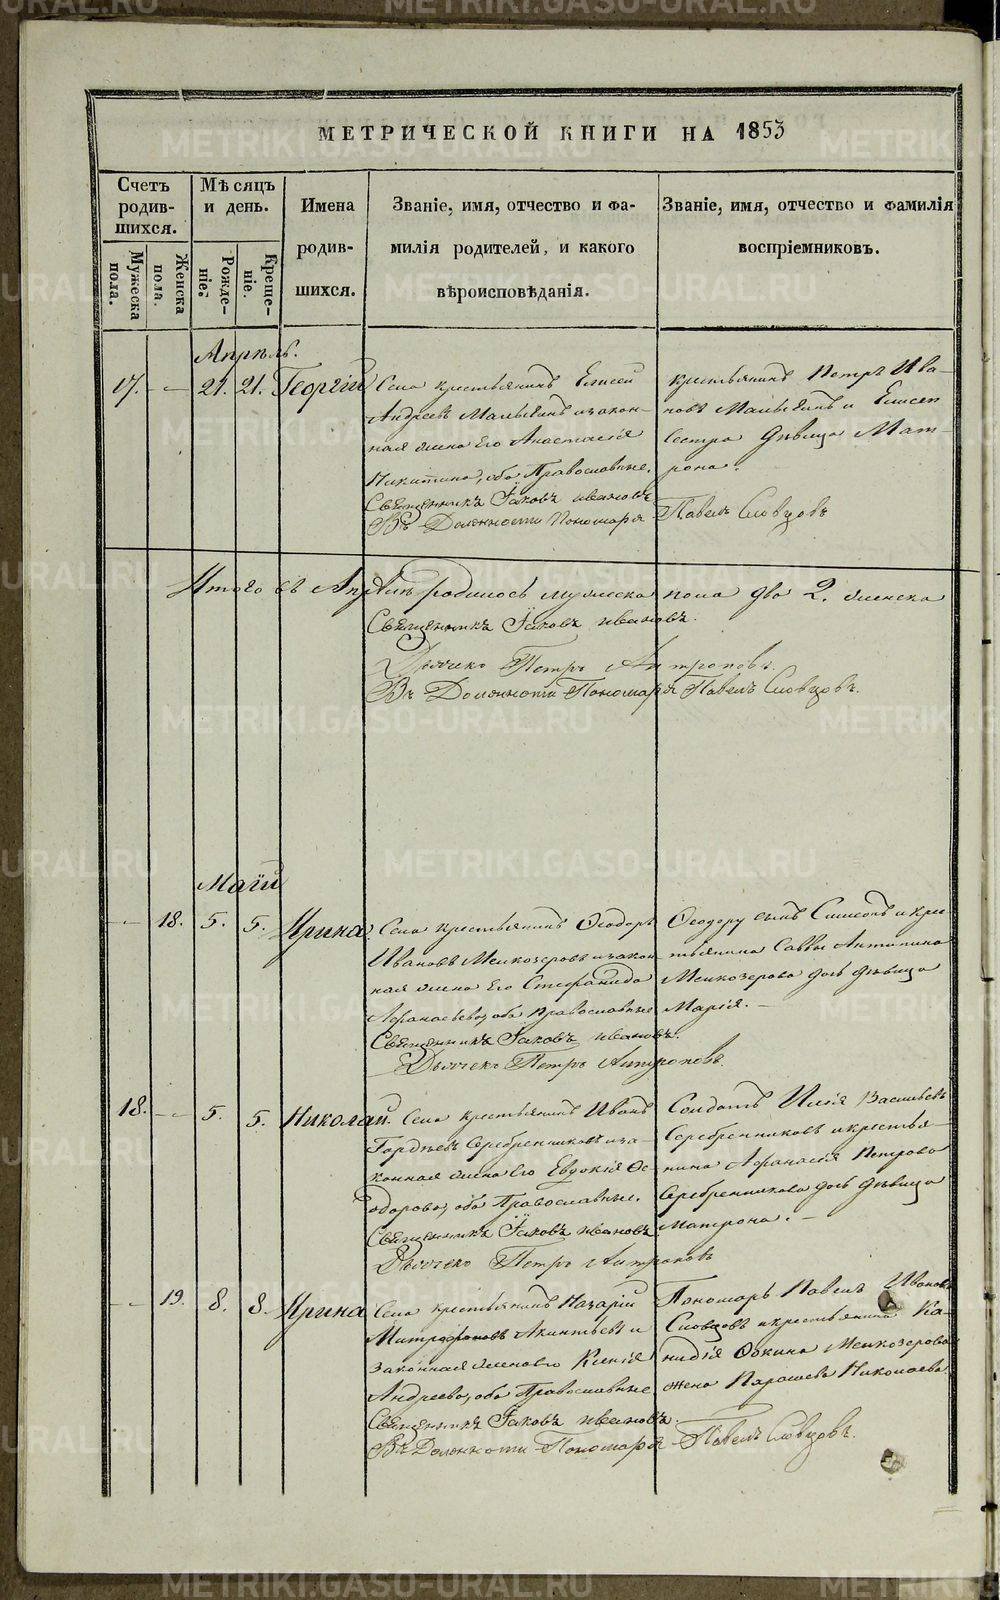 МЕТРИЧЕСКОЙ КНИГИ НА 1853
Счетъ родив-шихся.
Мужеска пола.
Женска пола.
Мѣсяцъ и день.
Рожде-ніе.
Креще-ніе.
Имена родив-шихся.
Званіе, имя, отчество и фа-
милія родителей, и какого
вѣроисповѣданія.
Званіе, имя, отчество и фамилія
воспріемниковъ.
Апрѣль.
17. — 21. 21. Георгій
Села крестьянинъ Елисей
Андреевъ и закон-
ная жена его Анастасія
Никитина, оба Православные.
Священникъ Іаковъ Ивановъ
Въ Должности Пономаря Павелъ Словцовъ
крестьянинъ Петръ Ива-
новъ и Елисея
Сестра дѣвица Мат-
рона.
Итого въ Апрѣлѣ родилось мужеска пола два 2. женска
Священникъ Іаковъ Ивановъ.
Дьячекъ Петръ Антроповъ.
Въ Должности Пономаря Павелъ Словцовъ.
Маій
— 18. 5. 5. Ирина
Села крестьянинъ Ѳеодоръ
Ивановъ Мелкозеровъ и закон
ная жена его Стефанида
Афанасьева, оба православные
Священникъ Іаковъ Ивановъ.
Дьячекъ Петръ Антроповъ.
Ѳеодору сынъ Симеонъ и кре
стьянина Саввы Антипина
Мелкозерова дочь дѣвица
Марія. —
18. — 5. 5. Николай.
Села крестьянинъ Иванъ
Гордѣевъ Серебренниковъ и за-
конная жена его Евдокія Ѳе
одорова, оба Православные.
Священникъ Іаковъ Ивановъ
Дьячекъ Петръ Антроповъ
Солдатъ Илія Васильевъ
Серебренниковъ и крестья-
нина Афанасія Петрова
Серебренникова дочь дѣвица
Матрона. —
— 19. 8. 8. Ирина
Села крестьянинъ Назарій
Митрофановъ Акинтьевъ и
законная жена его Ксенія
Андреева, оба Православные
Священникъ Іаковъ Ивановъ.
Въ Должности Пономаря Павелъ Словцовъ.
Пономарь Павелъ Ивановъ
Словцовъ и крестьянина Ка
Мелкозерова
жена Николаева
METRIKI.GASO-URAL.RU